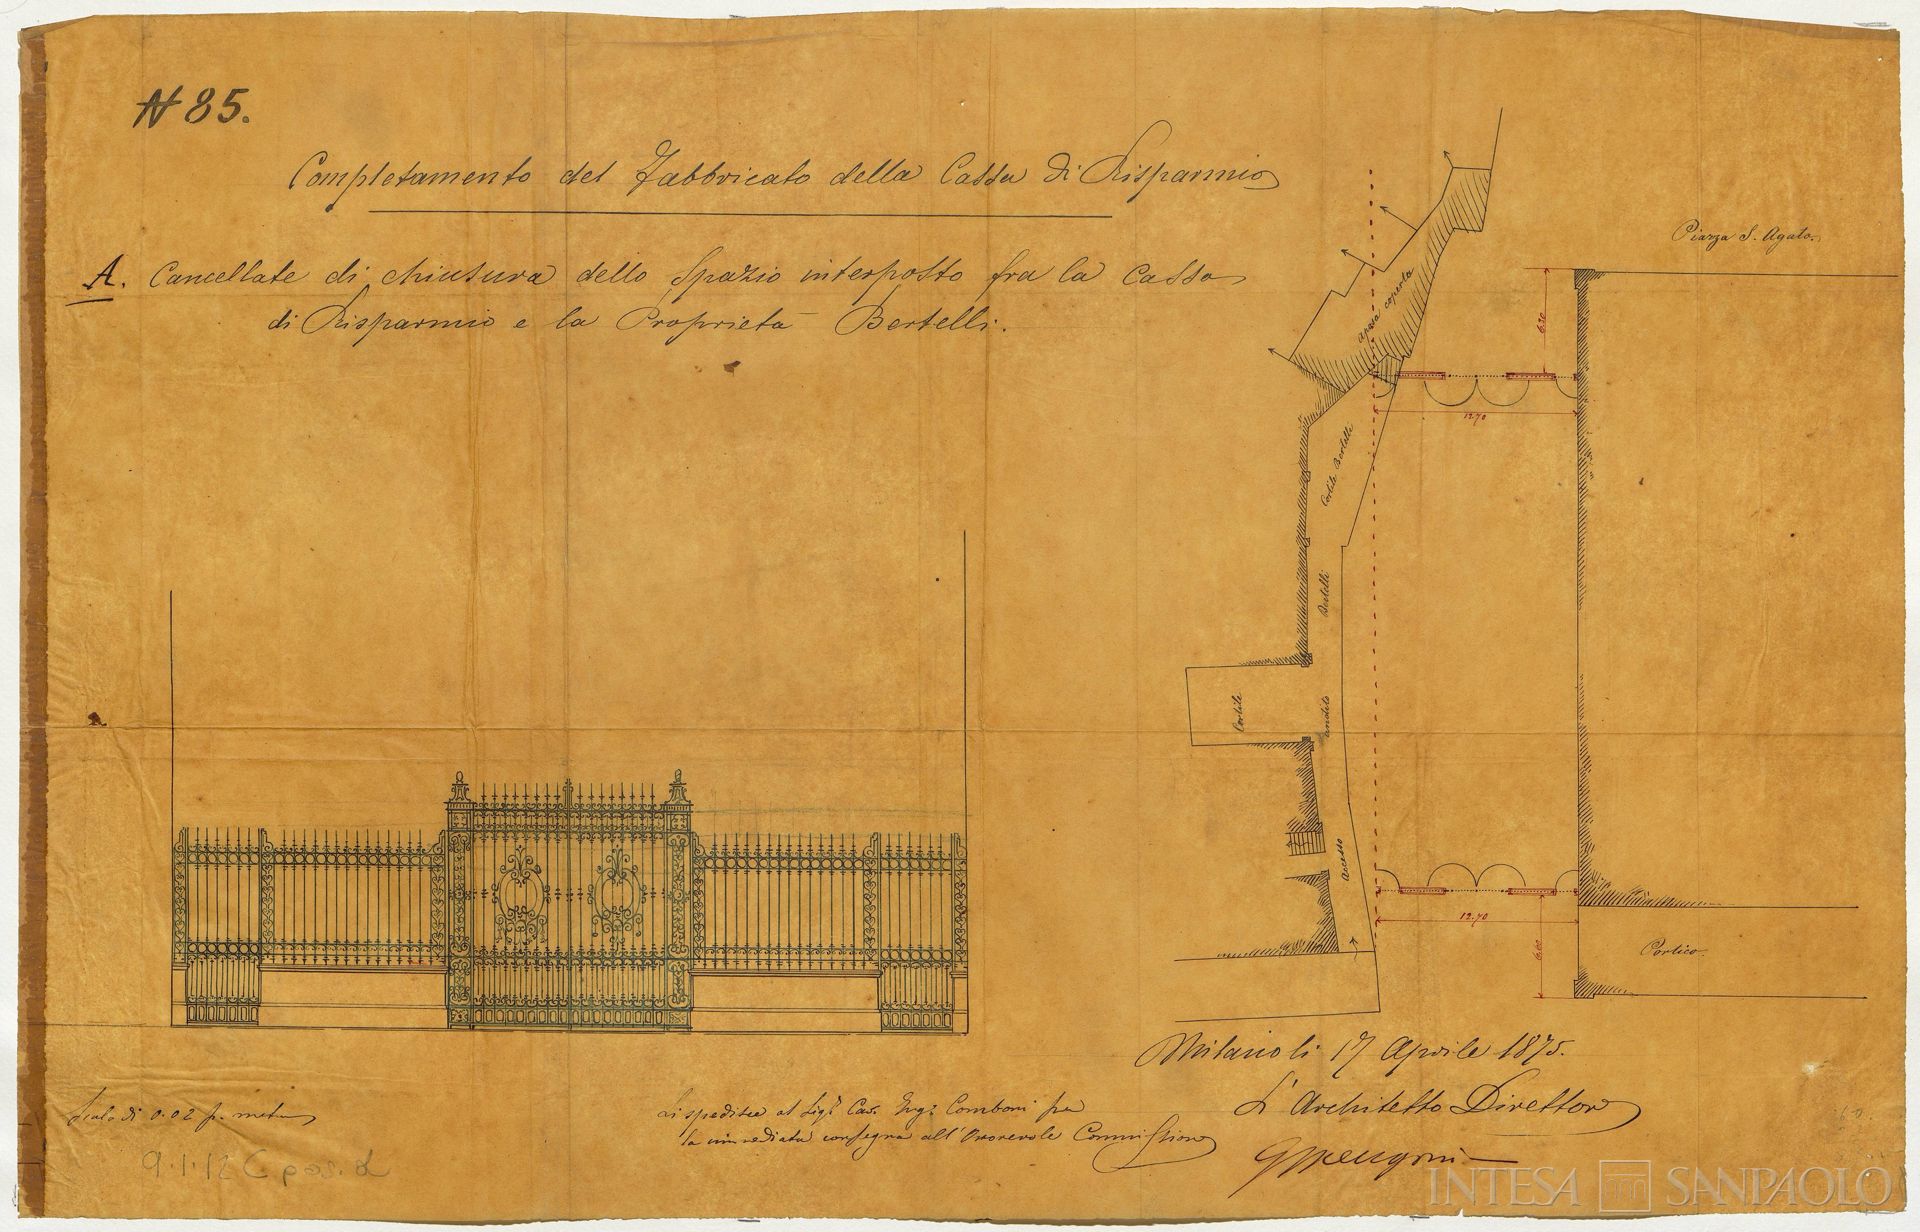 N 85.
Completamento del Fabbricato della Cassa di Risparmio
A. Cancellate di chiusura dello Spazio interposto fra la Cassa
di Risparmio e la Proprietà Bertelli.
Piazza S. Agata.
6.20
area coperta
12.70
Cortile Bertelli
Bertelli
Cortile
andito
Accesso
12.70
6.60
Portico
Milano li 17 Aprile 1875.
L'Architetto Direttore
Scala di 0.02 p. metro
Si spedisce al Sigr. Cav. Ingr. Comboni per
la immediata consegna all'Onorevole Commissione
9.1.12 C pos. 2
INTESA SANPAOLO